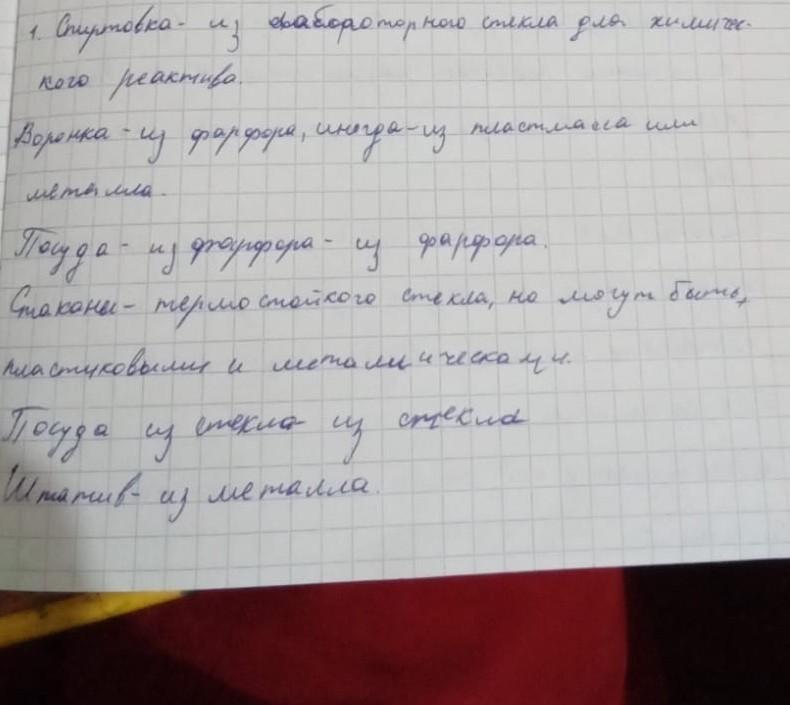 1. Спиртовка - из лабороторного стекла для химичес-
кого реактива.
Воронка - из фарфора, иногда - из пластмасса или
металла.
Посуда - из фарфора - из фарфора.
Стаканы - термостойкого стекла, но могут быть,
пластиковыми и металическами.
Посуда из стекла из стекла
Штатив - из металла.